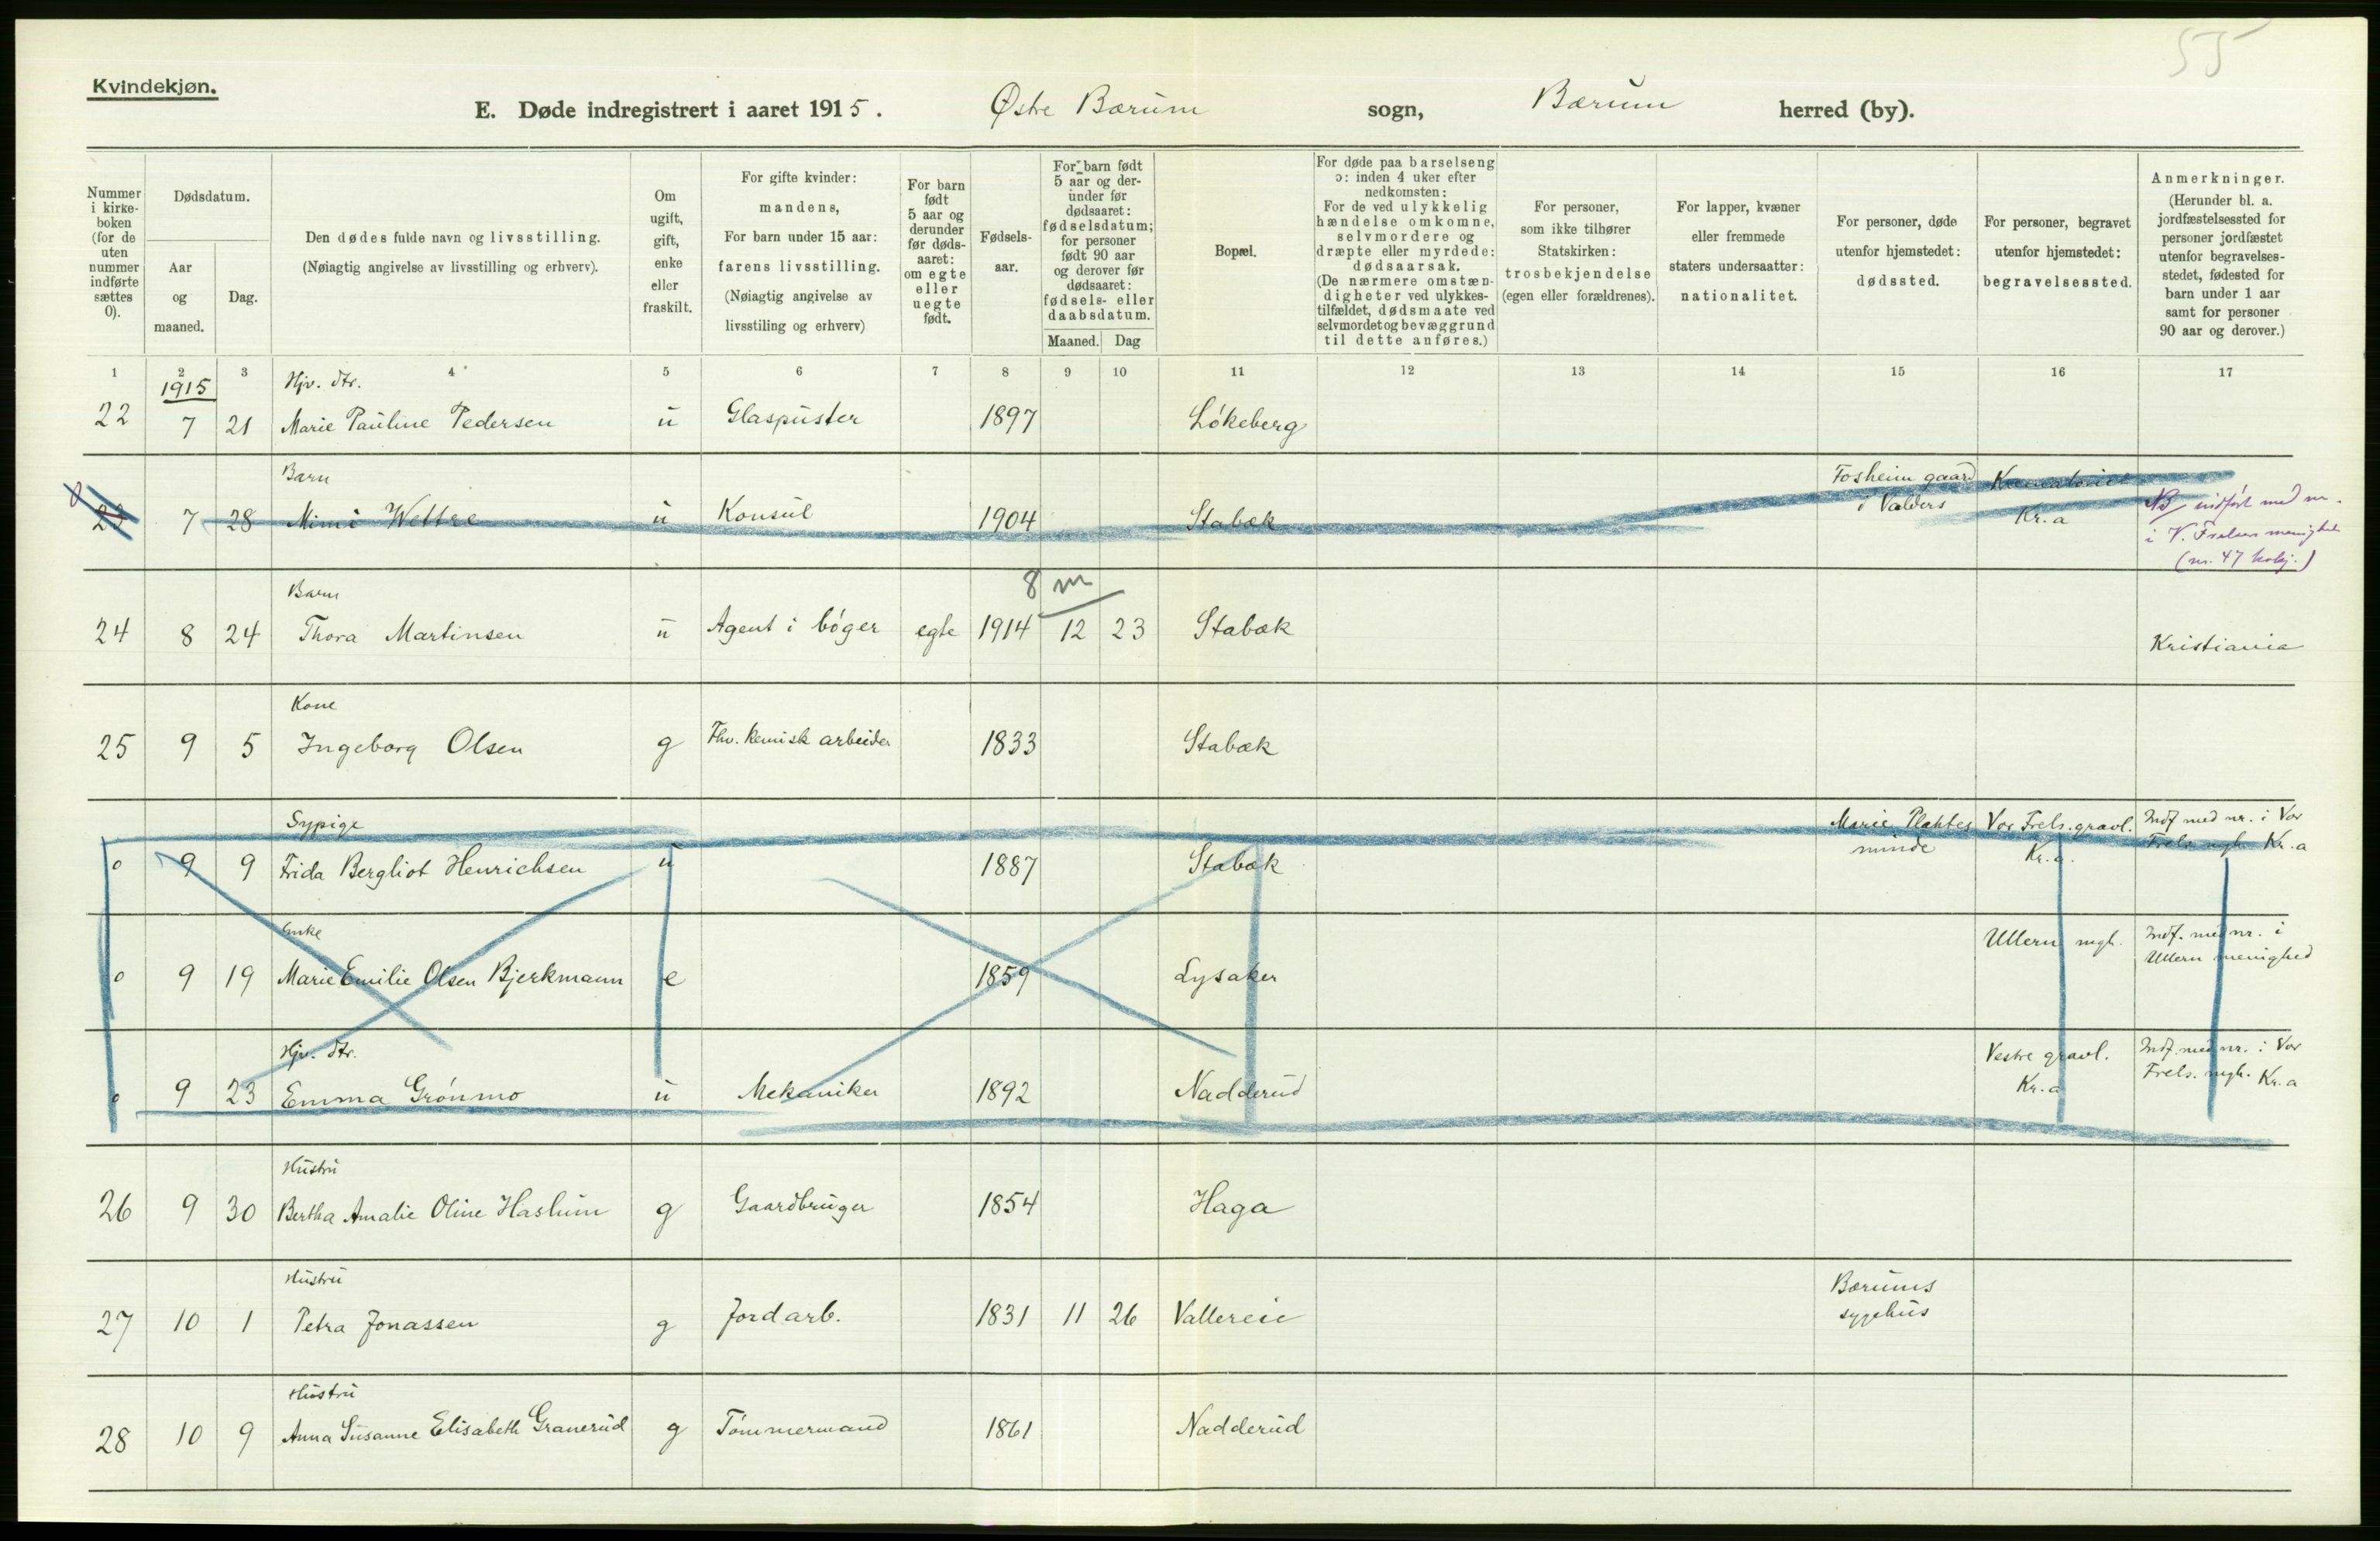 55
Kvindekjøn.
E. Døde indregistrert i aaret 1915. Østre Bærum sogn, Bærum herred (by).
Nummer i kirke-boken (for de uten nummer indførte sættes 0).
Dødsdatum.
Aar og maaned.
Dag.
Den dødes fulde navn og livsstilling.
(Nøiagtig angivelse av livsstilling og erhverv).
Om ugift, gift, enke eller fraskilt.
For gifte kvinder: mandens,
For barn under 15 aar: farens livsstilling.
(Nøiagtig angivelse av livsstiling og erhverv)
For barn født 5 aar og derunder før døds-aaret: om egte eller uegte født.
Fødsels-aar.
For barn født 5 aar og der-under før dødsaaret: fødselsdatum; for personer født 90 aar og derover før dødsaaret: fødsels- eller daabsdatum.
Maaned. Dag
Bopæl.
For døde paa barselseng ɔ: inden 4 uker efter nedkomsten:
For de ved ulykkelig hændelse omkomne, selvmordere og dræpte eller myrdede: dødsaarsak.
(De nærmere omstæn-digheter ved ulykkes-tilfældet, dødsmaate ved selvmordet og bevæggrund til dette anføres.)
For personer, som ikke tilhører Statskirken: trosbekjendelse (egen eller forældrenes).
For lapper, kvæner eller fremmede staters undersaatter: nationalitet.
For personer, døde utenfor hjemstedet: dødssted.
For personer, begravet utenfor hjemstedet: begravelsessted.
Anmerkninger.
(Herunder bl. a. jordfæstelsessted for personer jordfæstet utenfor begravelses-stedet, fødested for barn under 1 aar samt for personer 90 aar og derover.)
1 2 3 4 5 6 7 8 9 10 11 12 13 14 15 16 17
1915 Hjv. dtr.
22 7 21 Marie Pauline Pedersen u Glaspuster 1897 Løkeberg
Barn Fosheim gaard Krematoriet
0 23 7 28 Mimi Wettre u Konsul 1904 Stabæk i Valders Kr.a NB indført med nr.
i V. Frelsers menighet
(nr. 47 kvkj.)
Barn 8 m
24 8 24 Thora Martinsen u Agent i bøger egte 1914 12 23 Stabæk Kristiania
Kone
25 9 5 Ingeborg Olsen g Fhv. kemisk arbeider 1833 Stabæk
Sypige Marie Plahtes Vor Frels. gravl. Indf med nr. i Vor
0 9 9 Frida Bergliot Henrichsen u 1887 Stabæk minde Kr.a. Frels. mgh. Kr.a
Enke Ullern mgh. Indf. med nr. i
0 9 19 Marie Emilie Olsen Bjerkmann e 1859 Lysaker Ullern menighed
Hjv. dtr. Vestre gravl. Indf. med nr. i Vor
0 9 23 Emma Grønmo u Mekaniker 1892 Nadderud Kr.a Frels. mgh. Kr.a
Hustru
26 9 30 Bertha Amalie Oline Haslum g Gaardbruger 1854 Haga
Hustru Bærums
27 10 1 Petra Jonassen g Jordarb. 1831 11 26 Vallereie sygehus
Hustru
28 10 9 Anna Susanne Elisabeth Granerud g Tømmermand 1861 Nadderud